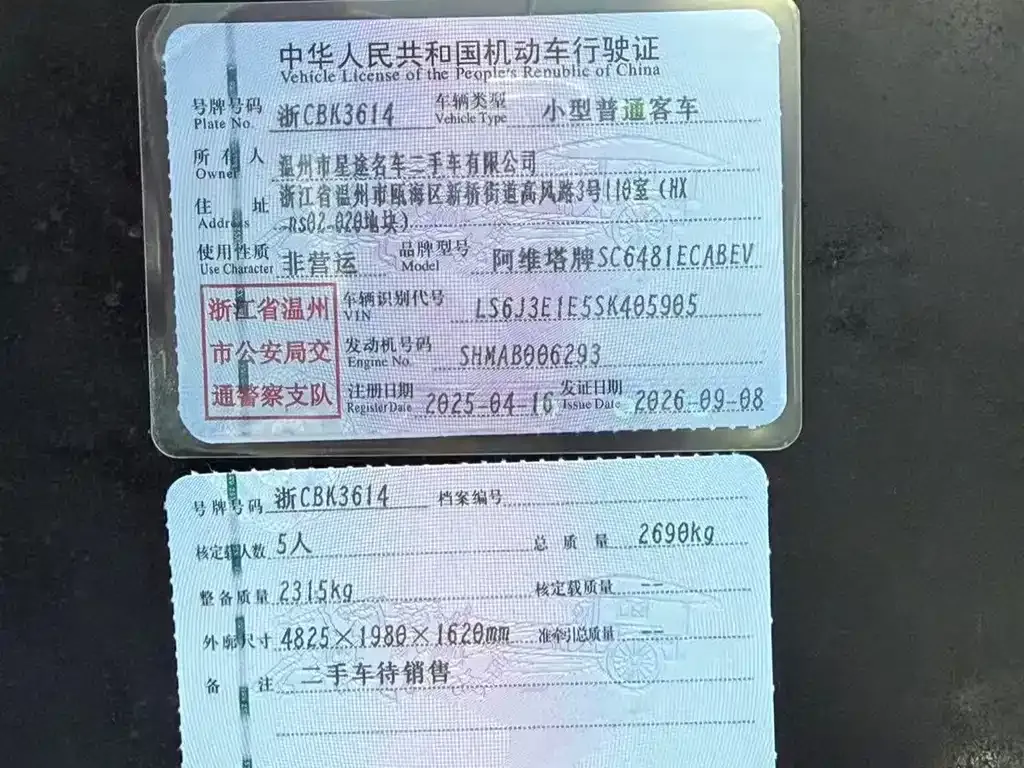 中华人民共和国机动车行驶证
Vehicle License of the People's Republic of China
号牌号码 浙CBK3614 车辆类型 小型普通客车
Plate No. Vehicle Type
所有人 温州市星途名车二手车有限公司
Owner
住址 浙江省温州市瓯海区新桥街道高风路3号110室(HX
Address -RS02-020地块)
使用性质 非营运 品牌型号 阿维塔牌SC6481ECABEV
Use Character Model
浙江省温州
市公安局交
通警察支队
车辆识别代号 LS6J3E1E5SK405905
VIN
发动机号码 SHMAB006293
Engine No.
注册日期 2025-04-16 发证日期 2026-09-08
Register Date Issue Date
号牌号码 浙CBK3614 档案编号
核定载人数 5人 总质量 2690kg
整备质量 2315kg 核定载质量 --
外廓尺寸 4825×1980×1620mm 准牵引总质量 --
备注 二手车待销售